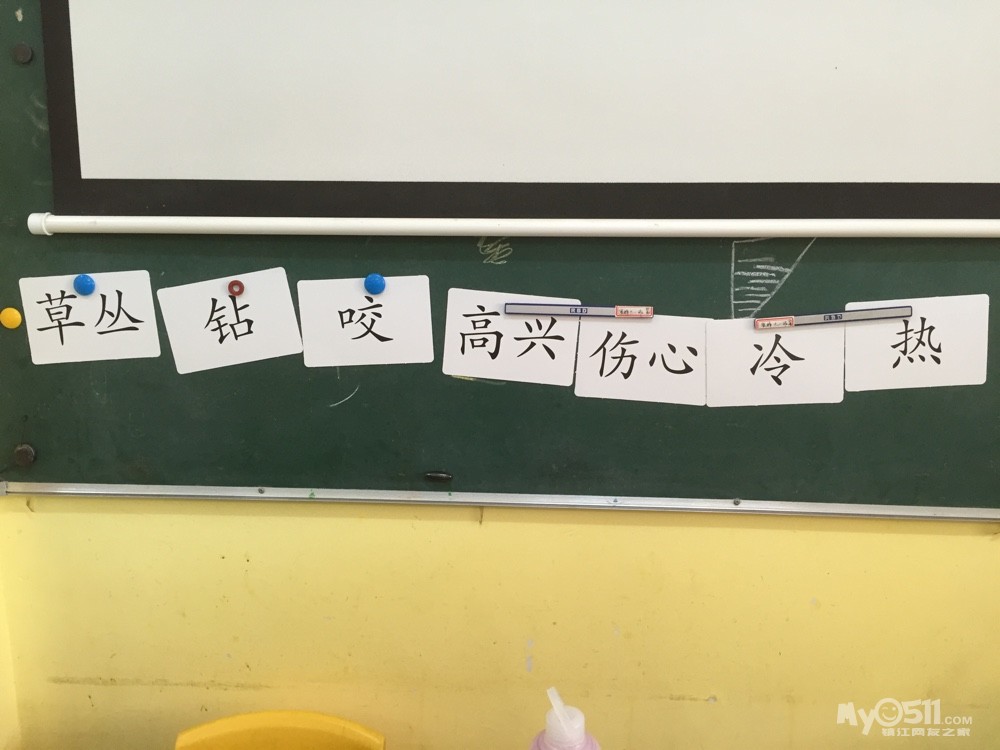 草丛
钻
咬
高兴
伤心
冷
热
My0511.COM
镇江网友之家